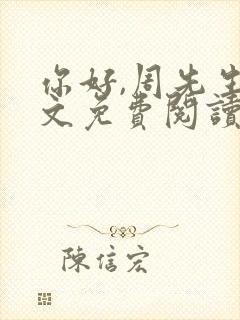 你好,周先生
文免費閱讀
陳信宏